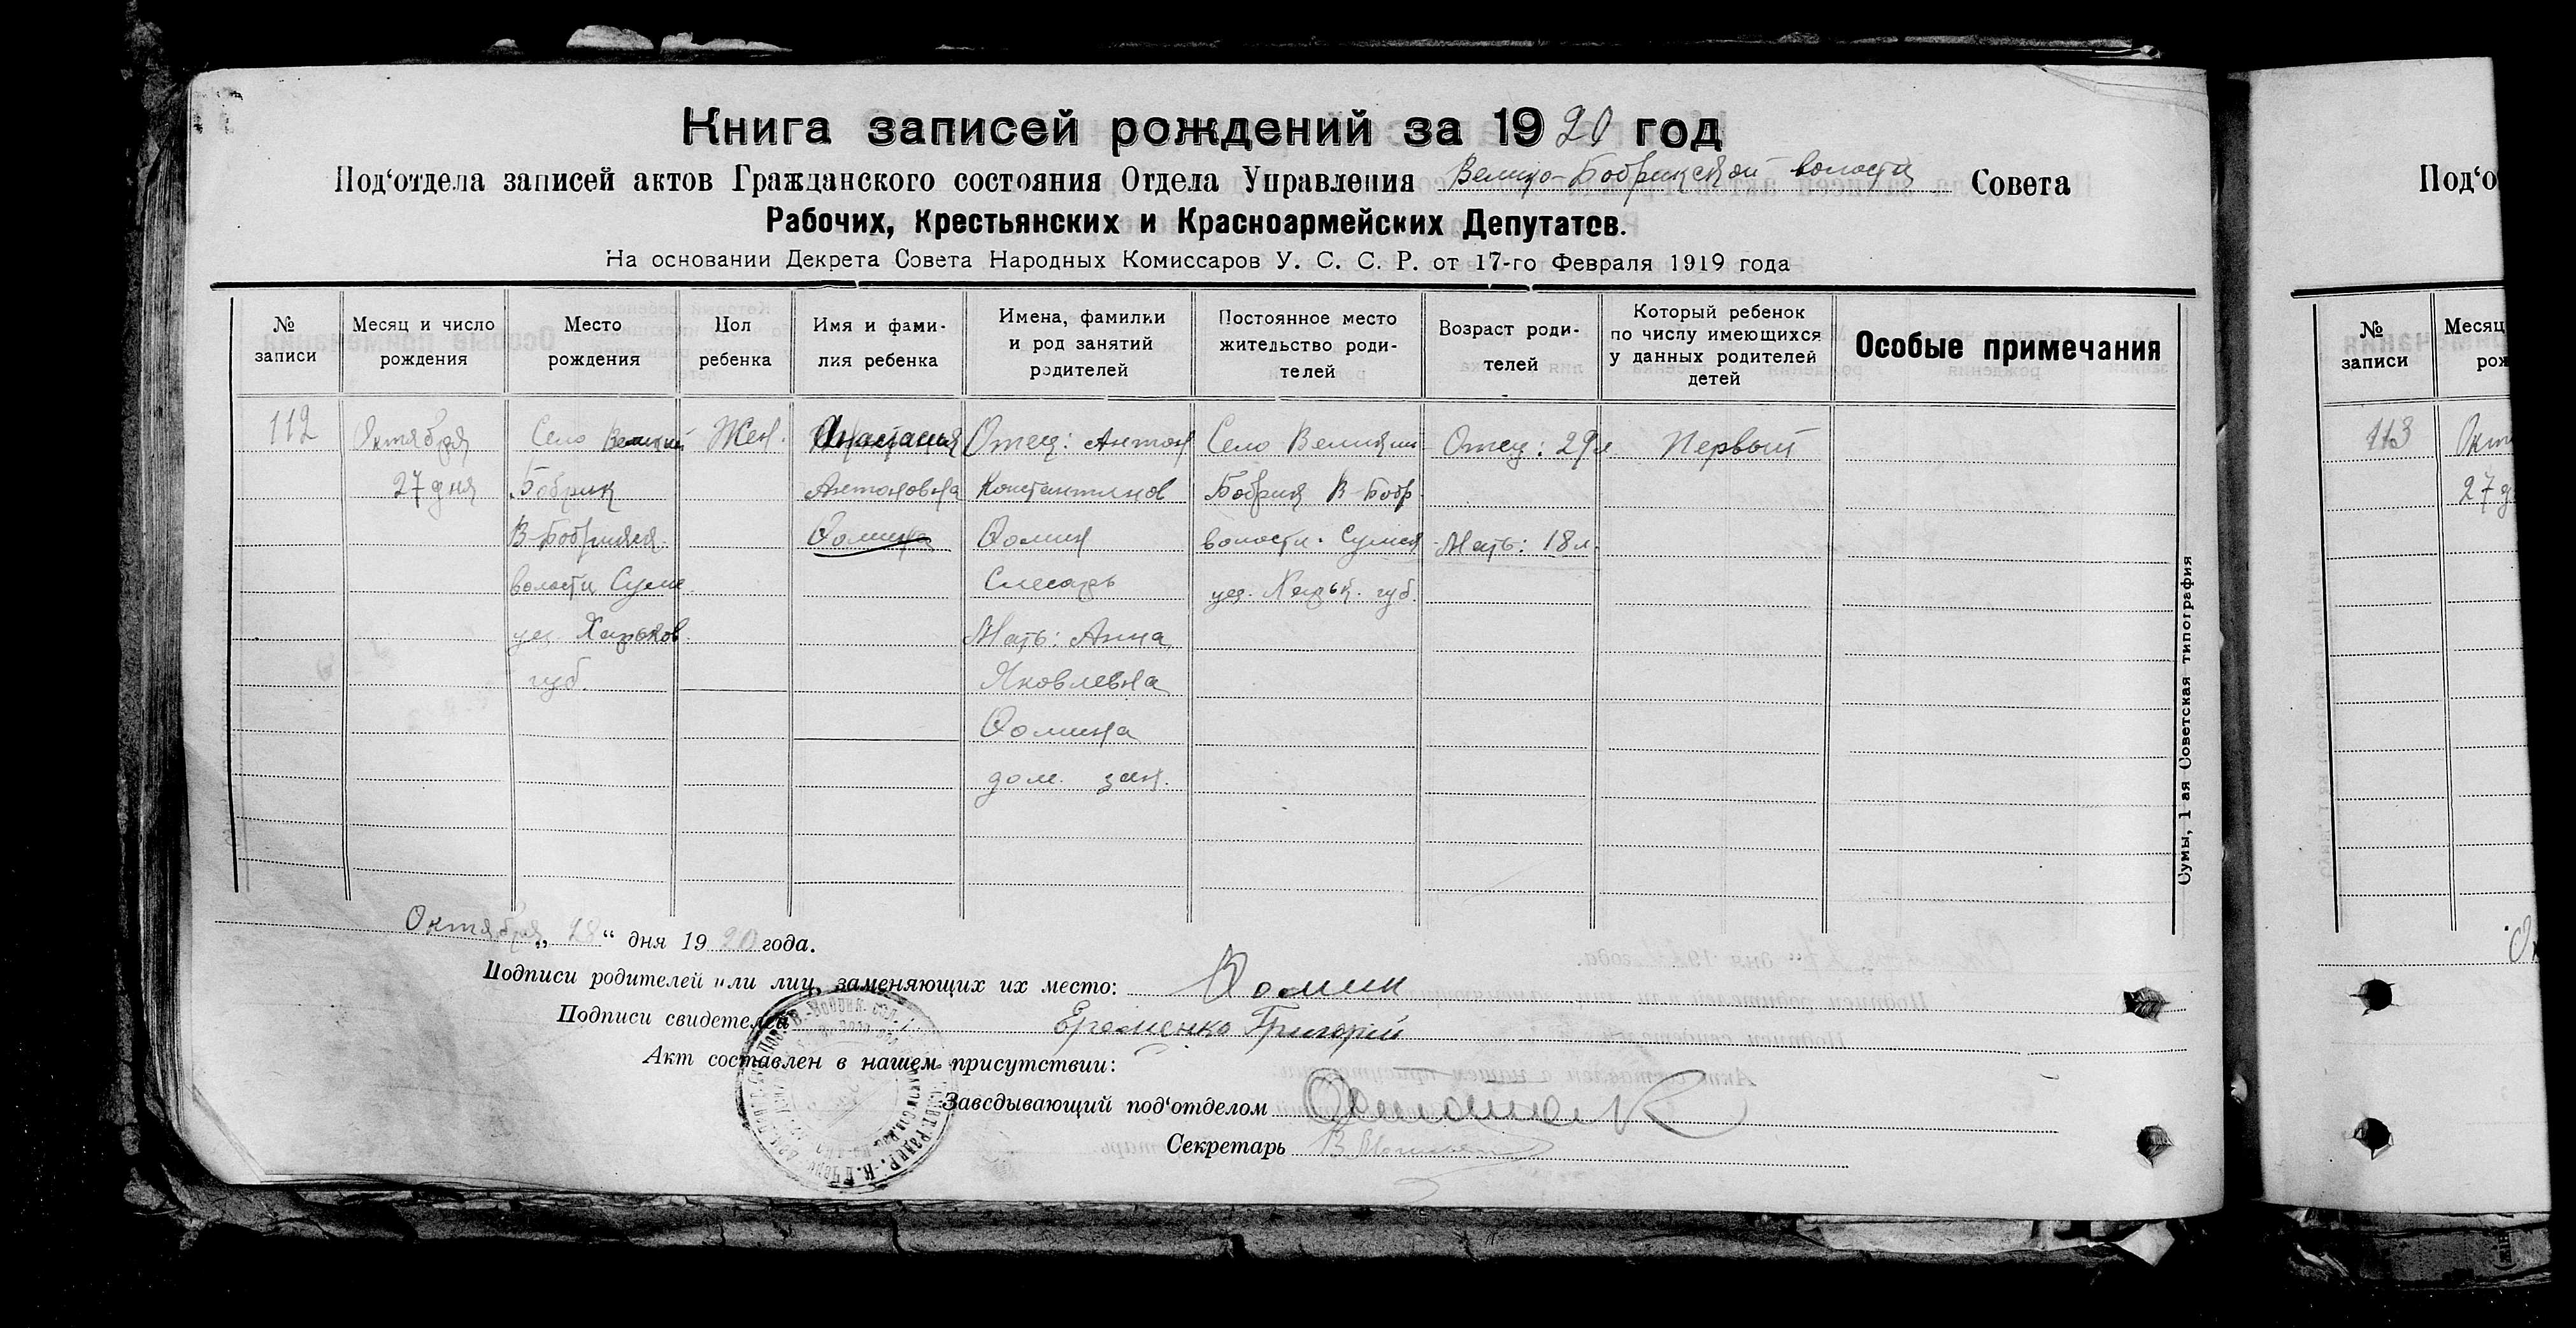 Книга записей рождений за 1920 год
Под‘отдела записей актов Гражданского состояния Отдела Управления Велико-Бобрикской волости Совета
Рабочих, Крестьянских и Красноармейских Депутатов.
На основании Декрета Совета Народных Комиссаров У. С. С. Р. от 17-го Февраля 1919 года
№ записи
Месяц и число рождения
Место рождения
Пол ребенка
Имя и фами-
лия ребенка
Имена, фамилки
и род занятий
родителей
Постоянное место
жительство роди-
телей
Возраст роди-
телей
Который ребенок
по числу имеющихся
у данных родителей
детей
Особые примечания
112
Октября
27 дня
Село Великий
Бобрик
В-Бобрикск.
волости Сумс.
уез. Харьков.
губ.
Жен.
Анастасия
Антоновна
Фомина
Отец: Антон
Константинов
Фомин
Слесарь
Мать: Анна
Яковлевна
Фомина
дом. зан.
Село Великий
Бобрик В-Бобр.
волости. Сумск
уез. Харьк. губ.
Отец: 29л.
Мать: 18л.
Первый
Октября „28“ дня 1920 года.
Подписи родителей или лиц, заменяющих их место: Фомин
Подписи свидетелей Еременко Григорий
Акт составлен в нашем присутствии:
Заведывающий под‘отделом
Секретарь
Сумы, 1-ая Советская типография
Под‘о
№ записи
Месяц
рож
113
Окт
27 д